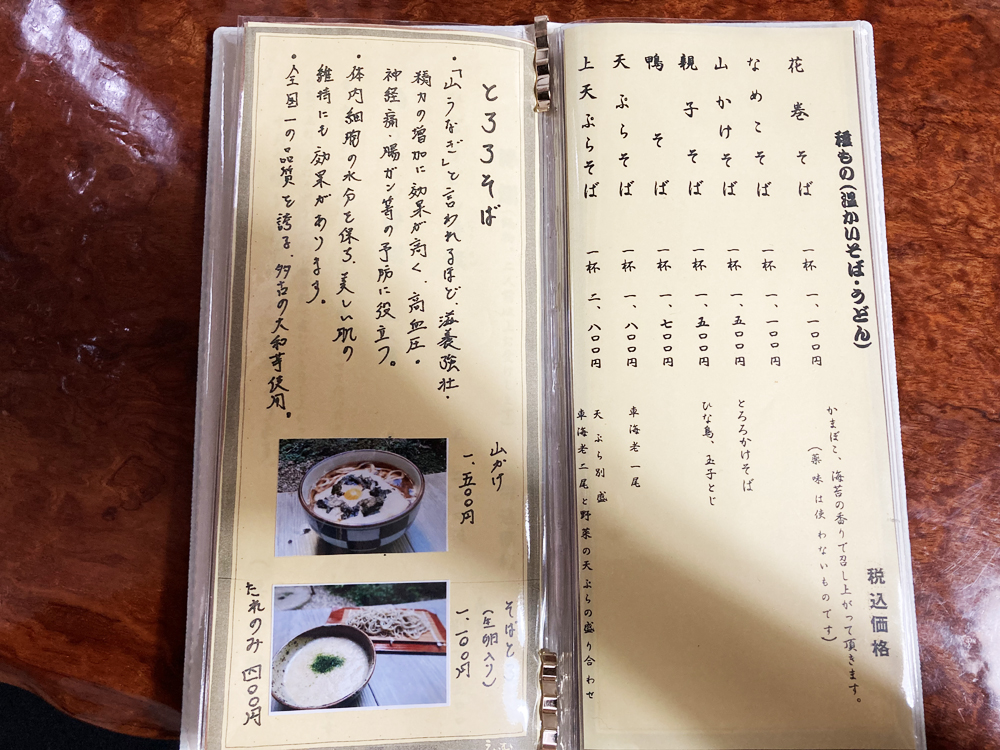 種もの(温かいそば・うどん)
花巻そば 一杯 一、一〇〇円
かまぼこ、海苔の香りで召し上がって頂きます。
(薬味は使わないものです)
なめこそば 一杯 一、一〇〇円
山かけそば 一杯 一、五〇〇円 とろろかけそば
親子そば 一杯 一、五〇〇円 ひな鳥、玉子とじ
鴨そば 一杯 一、七〇〇円
天ぷらそば 一杯 一、八〇〇円 車海老一尾
上天ぷらそば 一杯 二、八〇〇円
天ぷら別盛
車海老二尾と野菜の天ぷらの盛り合わせ
税込価格
とろろそば
・「山うなぎ」と言われるほど、滋養強壮・
精力の増加に効果が高く、高血圧・
神経痛・腸ガン等の予防に役立つ。
・体内細胞の水分を保ち、美しい肌の
維持にも効果があります。
・全国一の品質を誇る、多古の大和芋使用。
山かけ
一、五〇〇円
そばと
(生卵入り)
一、一〇〇円
たれのみ 四〇〇円